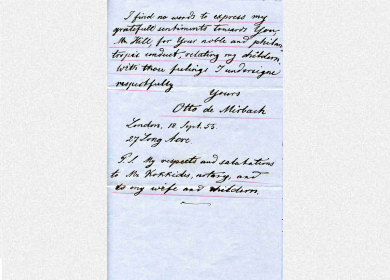 I find no words to express my
gratefull sentiments towards You
Mr Hill, for Your noble and philan,
tropic conduct, relating my childern,
with thou feelings I undersigne
respectfully
Yours
Otto de Mirbach
London, 18 Sept. 53.
27 Long Acre
P.S. My respects and salutations
to Mr Kokkides, notary, and
to my wife and childern.